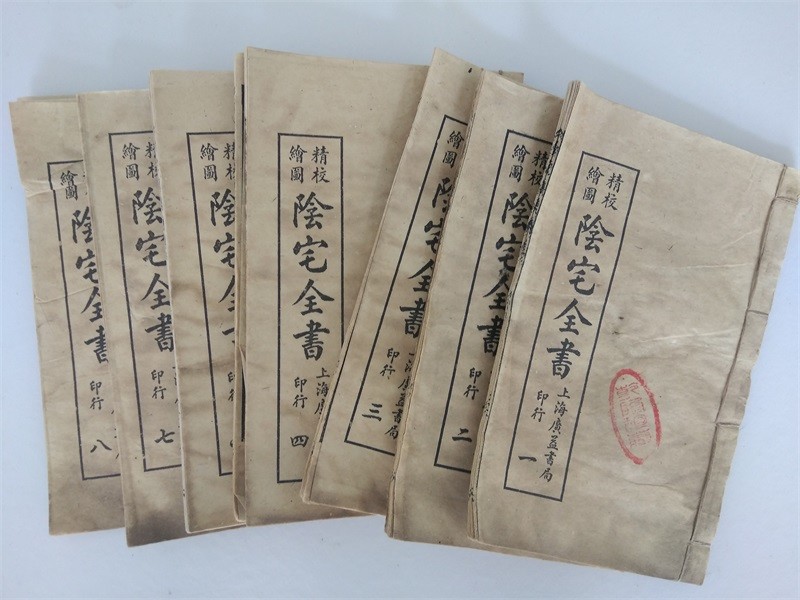 精校
繪圖
陰宅全書
上海廣益書局
印行
一
精校
繪圖
陰宅全書
印行
二
繪圖
陰宅全書
上海廣益書局
印行
三
精校
繪圖
陰宅全書
上海廣
印行
四
精校
繪圖
陰宅全
精校
繪圖
陰宅全書
印行
七
繪圖
陰宅全書
印行
八